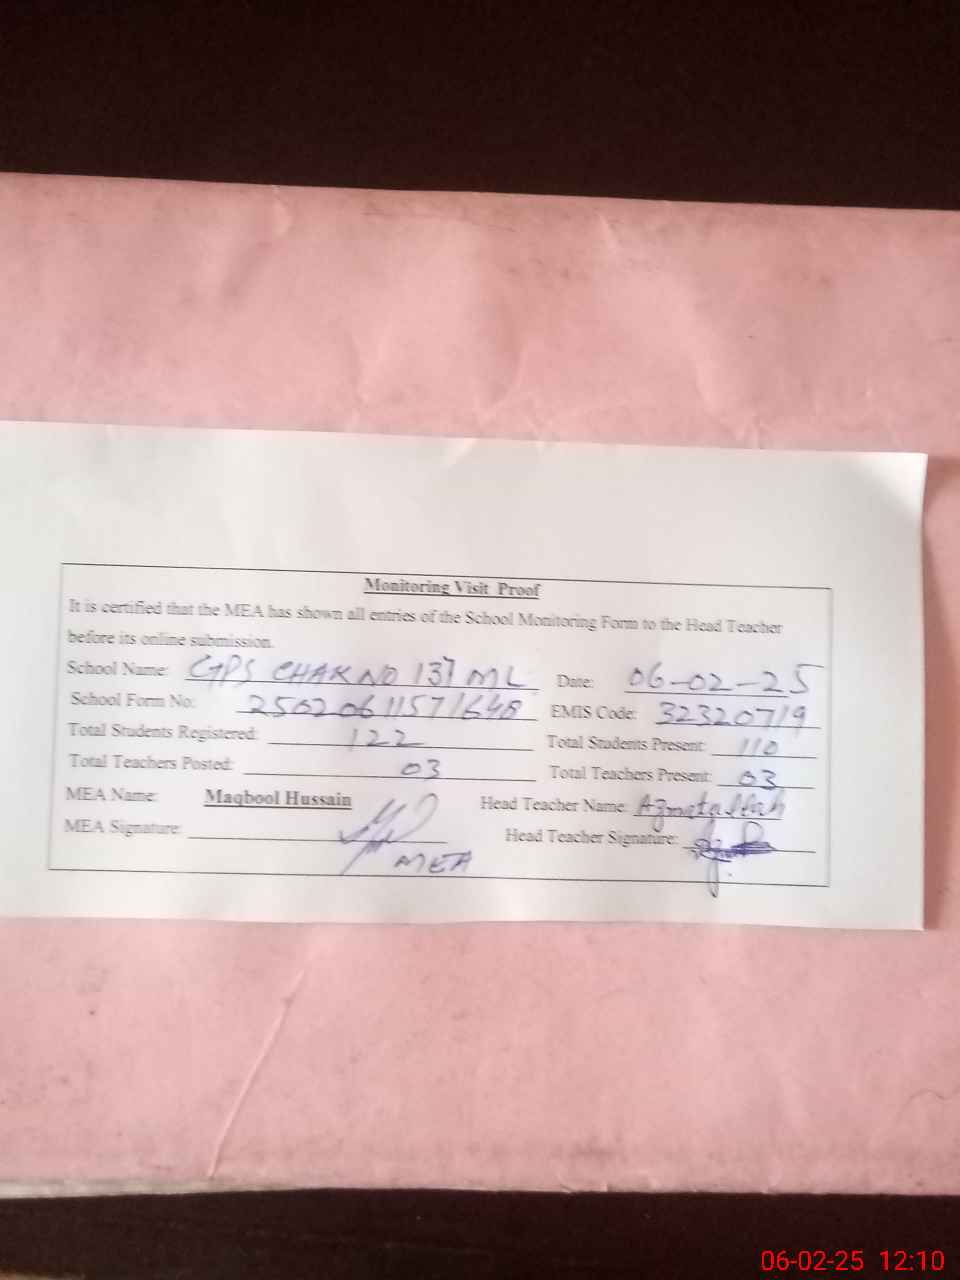 Monitoring Visit Proof
It is certified that the MEA has shown all entries of the School Monitoring Form to the Head Teacher
before its online submission.
School Name: GPS CHAK NO 137 ML Date: 06-02-25
School Form No: 25020611571648 EMIS Code: 32320719
Total Students Registered: 122 Total Students Present: 110
Total Teachers Posted: 03 Total Teachers Present: 03
MEA Name: Maqbool Hussain Head Teacher Name: Azmatullah
MEA Signature: Head Teacher Signature:
MEA
06-02-25 12:10